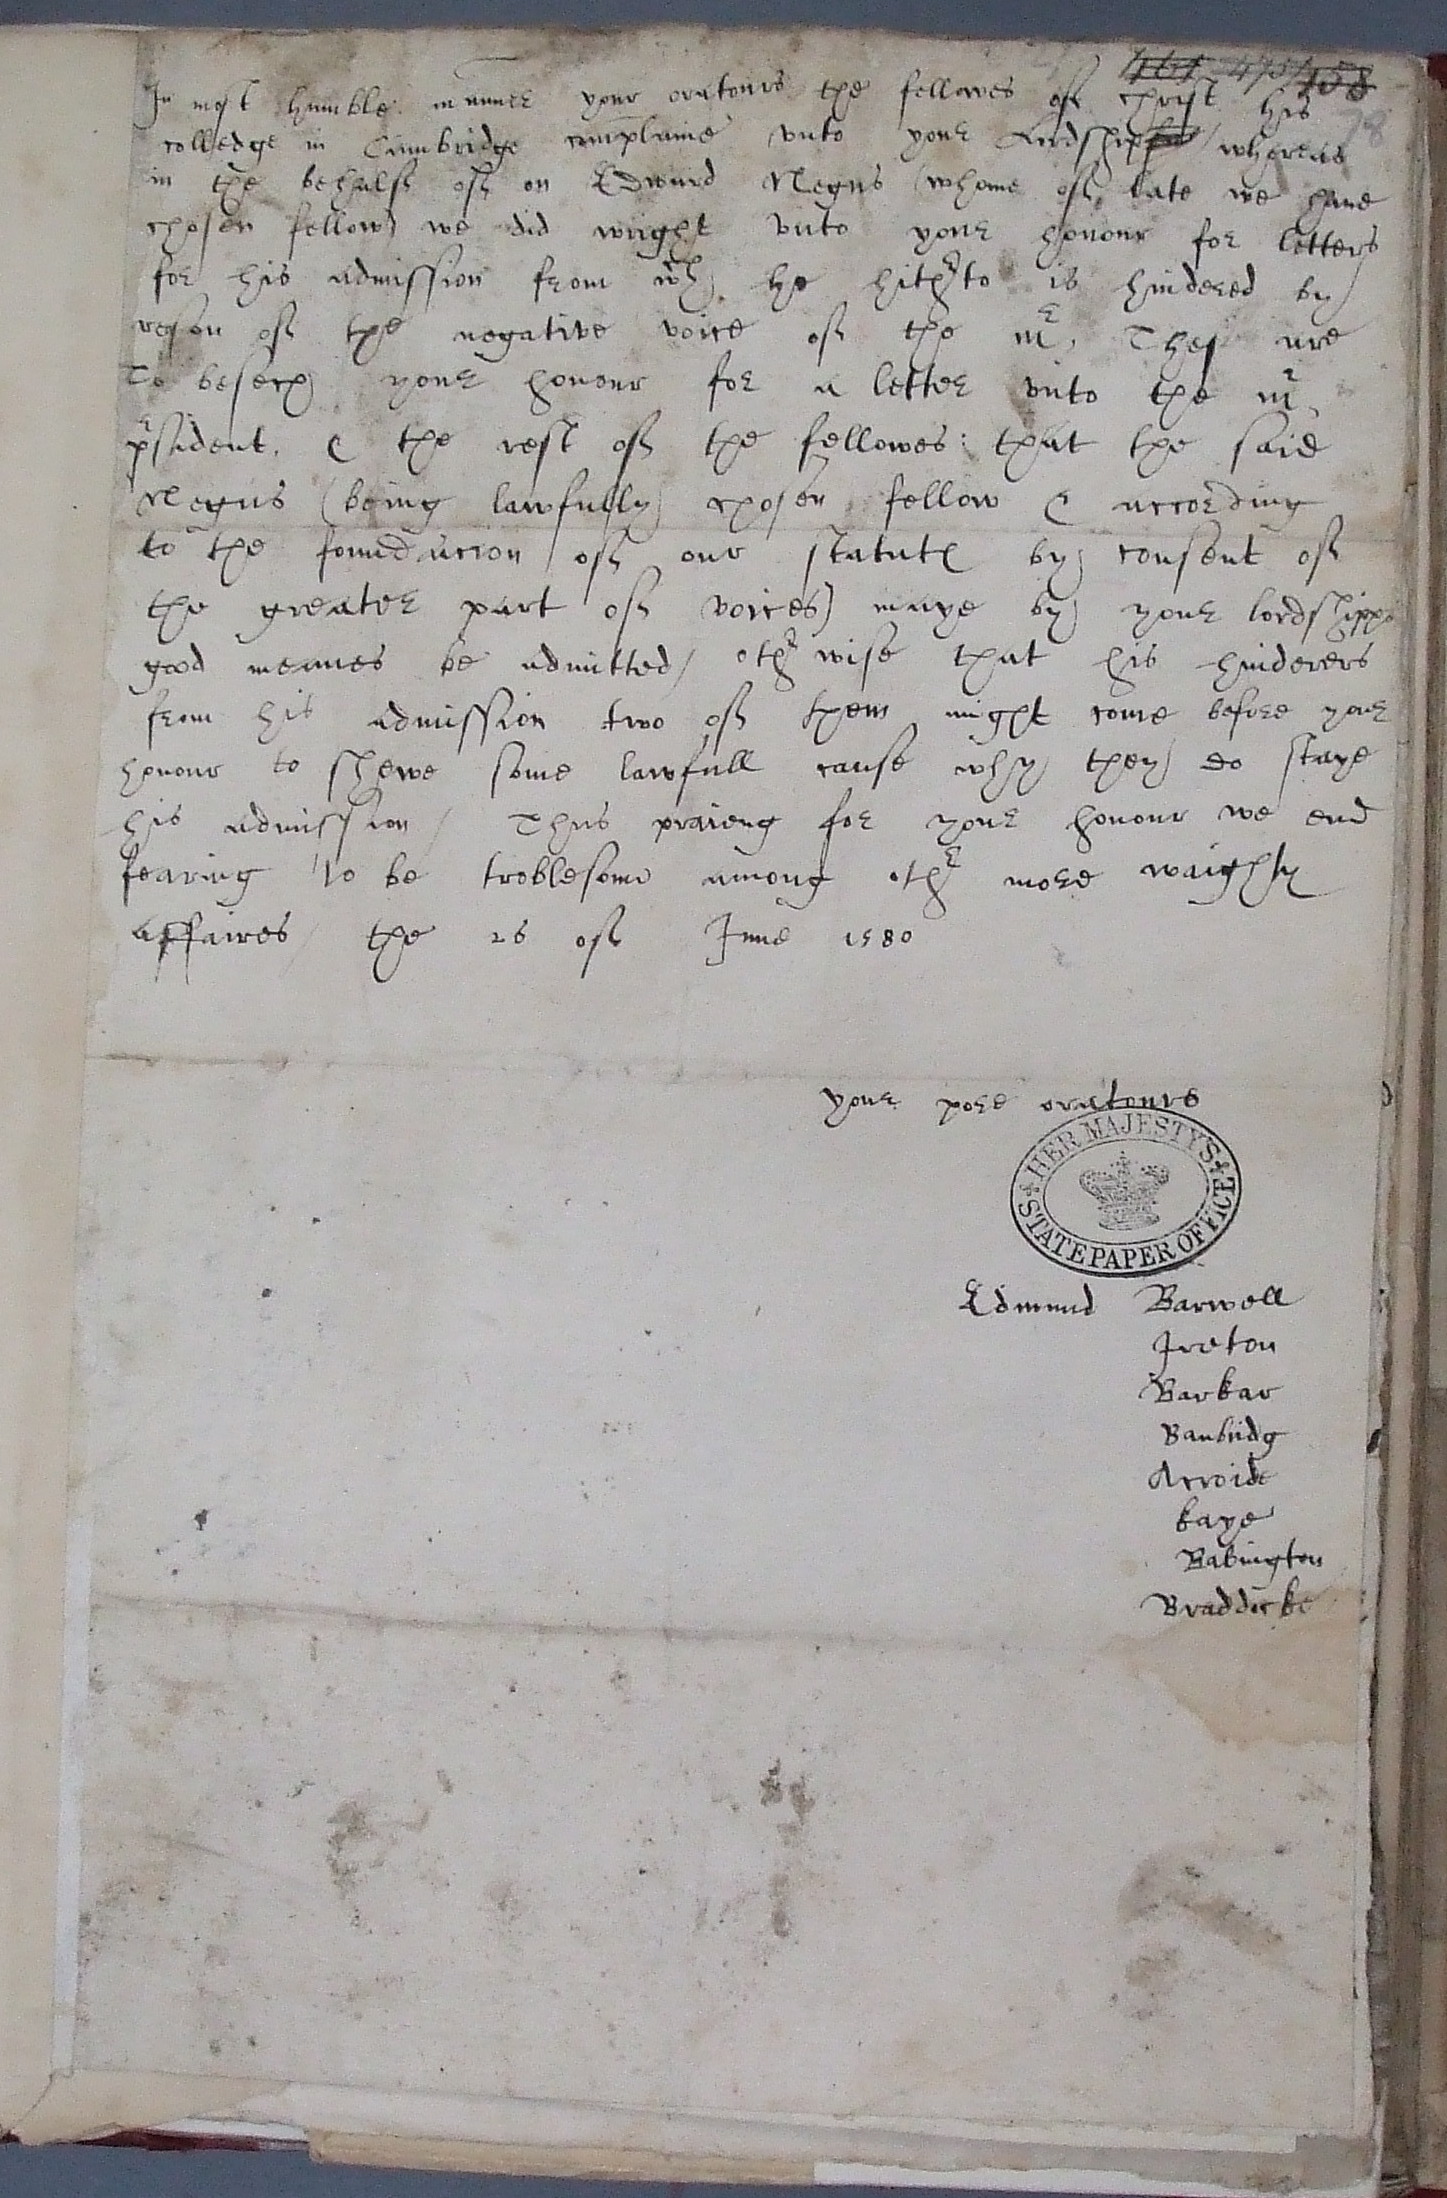 158
78
In most humble manner your oratours the fellowes off christ his
colledge in Cambridge complaine vnto your Lordshipp / whereas
in the behalff off on Edward Negus (whome off late we haue
chosen fellow) we did wright vnto your honour for letters
for his admission from wch he hitherto is hindered by
reason off the negative voice off the mr. Thes are
To besech your honour for a letter vnto the mr
president. & the rest off the fellowes: that the said
Negus (being lawfully chosen fellow & according
to the foundacion off our statutes by consent off
the greater part off voices) maye by your lordshipps
good meanes be admitted / otherwise that his hinderers
from his admission two off them might come before your
honour to shewe some lawfull cause why they do staye
his admission / Thus praieng for your honour we end
fearing to be troblesome among other more waighty
affaires / the 26 off June 1580
your pore oratours
HER MAJESTY'S STATE PAPER OFFICE
Edmund Barwell
Ireton
Barkar
Banbridg
Acroide
kaye
Babington
Braddocke